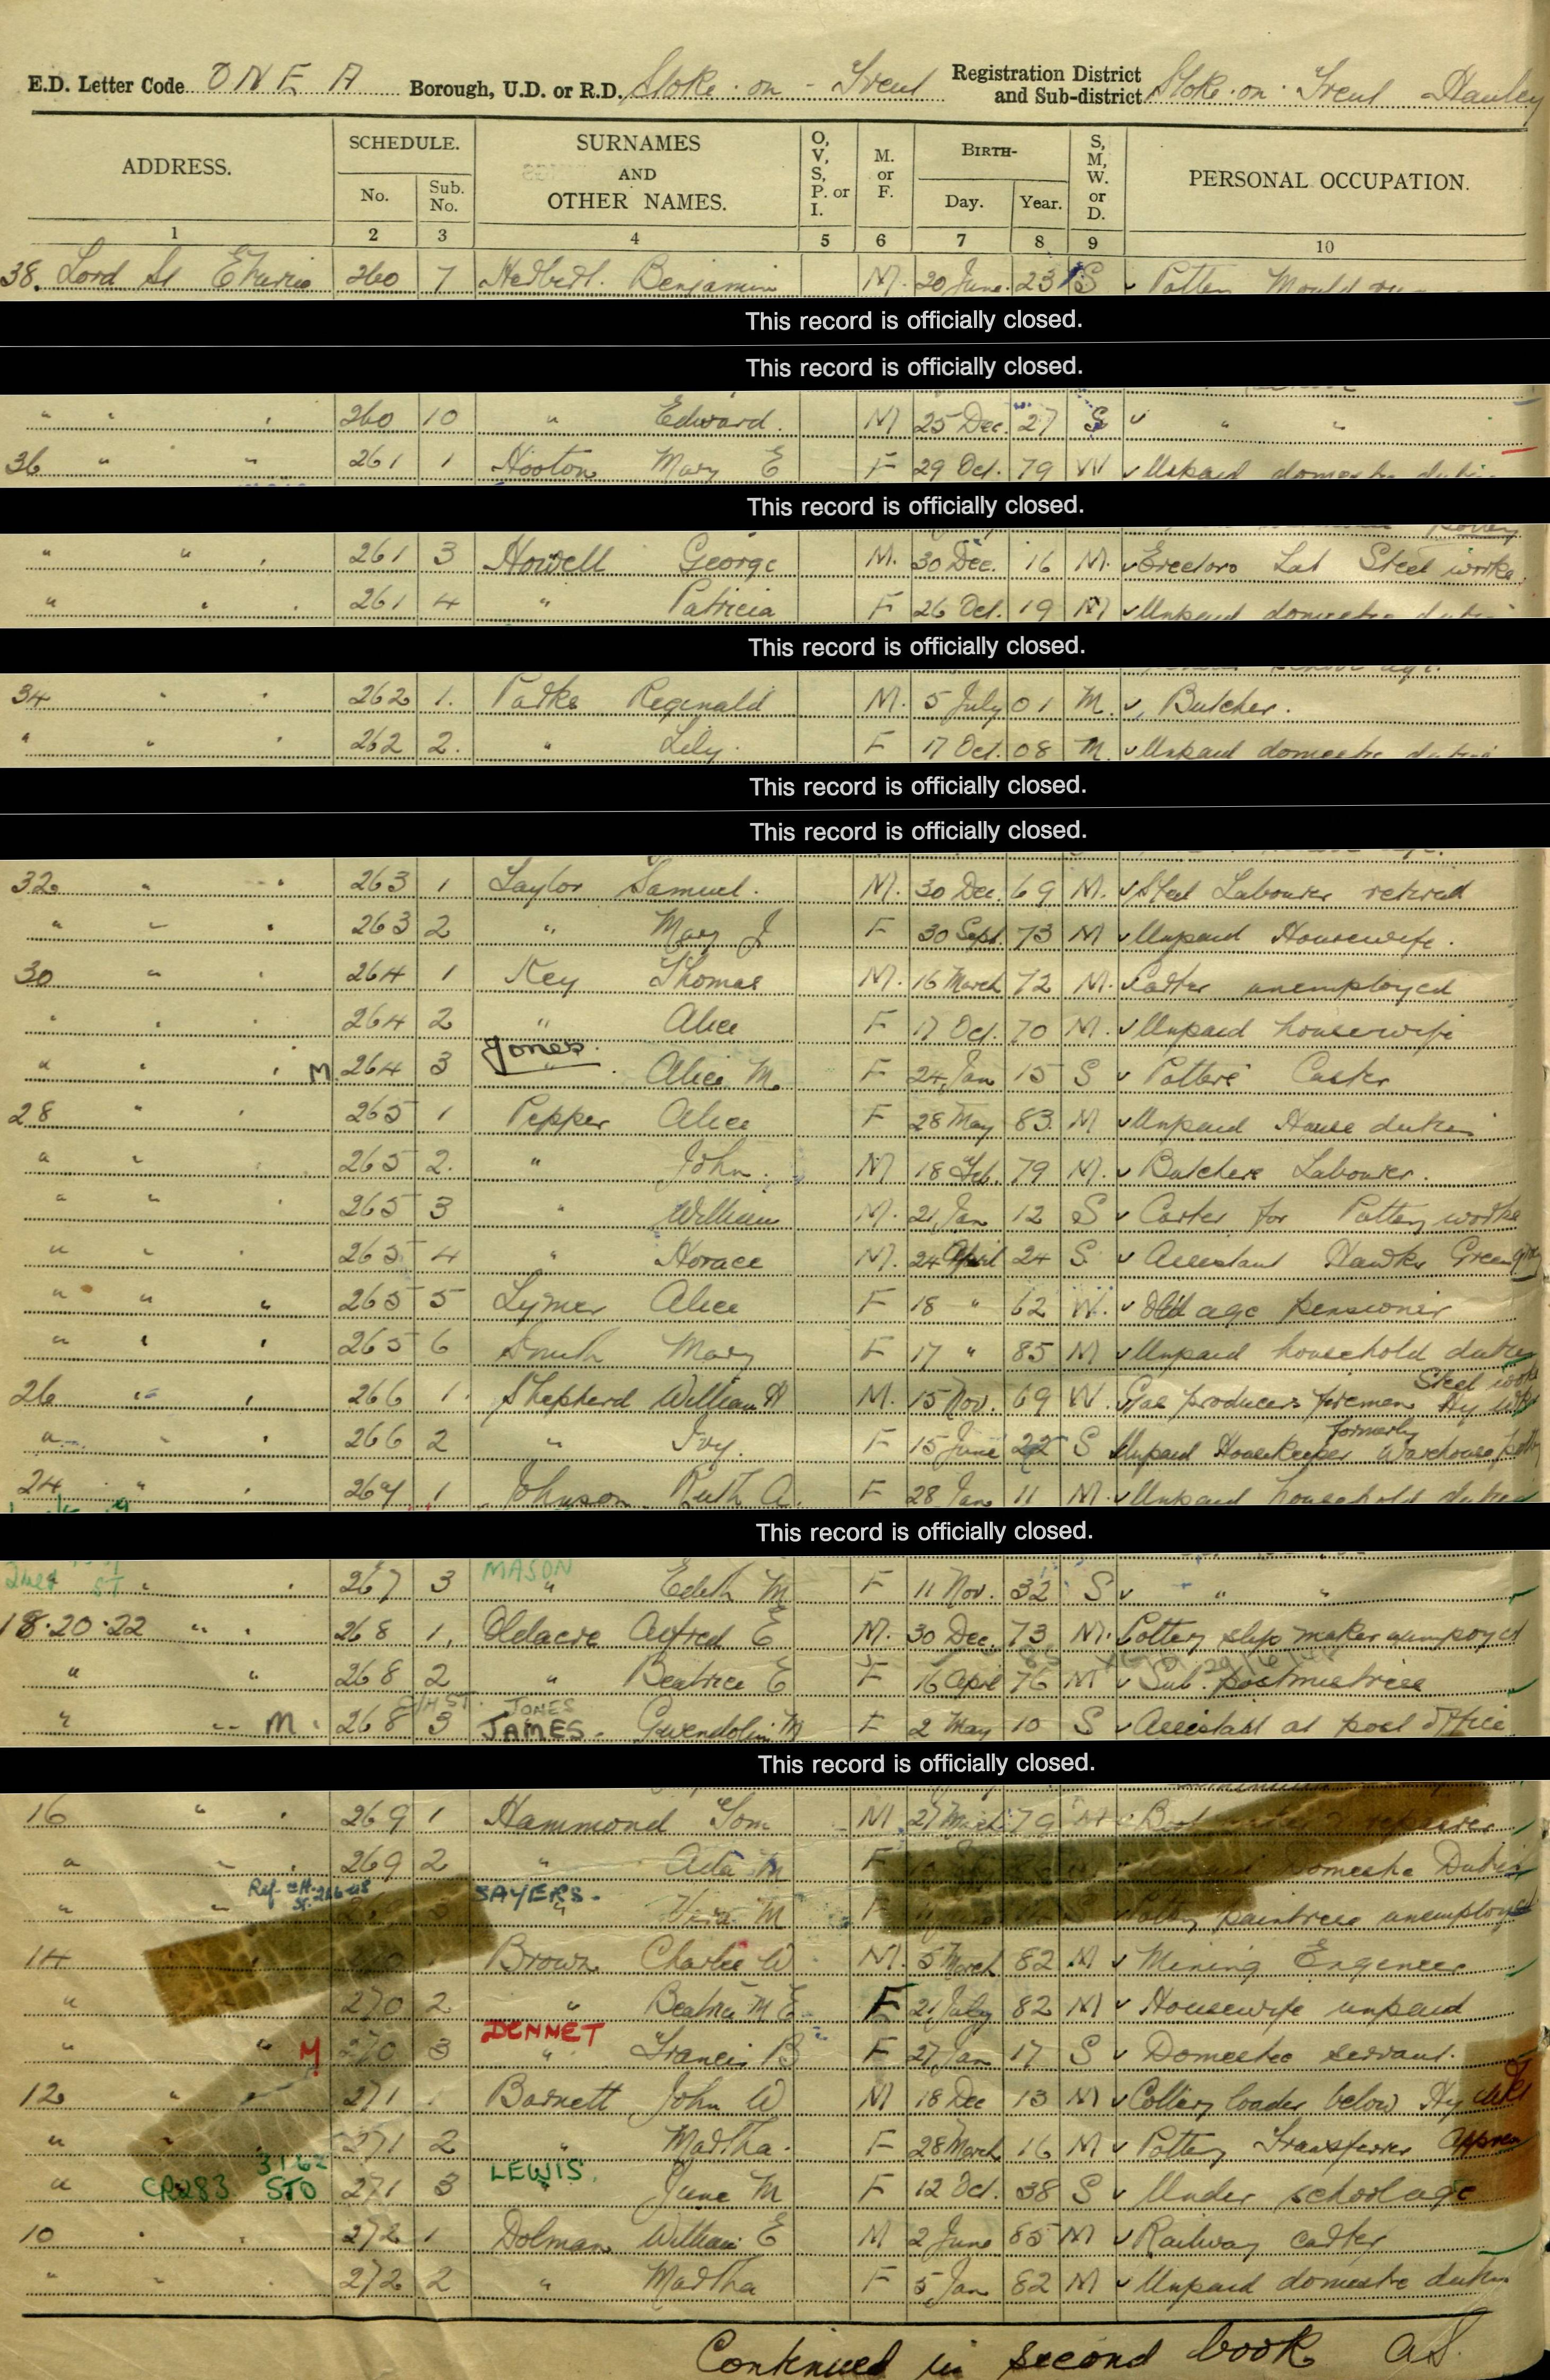 E.D. Letter Code O N E A Borough, U.D. or R.D. Stoke-on-Trent Registration District and Sub-district Stoke-on-Trent Hanley
ADDRESS. SCHEDULE. No. Sub. No. SURNAMES AND OTHER NAMES. O, V, S, P. or I. M. or F. BIRTH- Day. Year. S, M, W. or D. PERSONAL OCCUPATION.
1 2 3 4 5 6 7 8 9 10
38. Lord St Etruria 260 7 Herbert. Benjamin M. 30 June. 23 S Potters Mould
This record is officially closed.
This record is officially closed.
" " " 260 10 " Edward. M 25 Dec. 27 S " "
36 " " 261 1 Hooton Mary E F 29 Oct. 79 W Unpaid domestic duties
This record is officially closed.
" " " 261 3 Howell George M. 30 Dec. 16 M. Erectors Lab Steel works
" " " 261 4 " Patricia F 26 Oct. 19 M Unpaid domestic duties
This record is officially closed.
34 " " 262 1. Parks Reginald M. 5 July 01 M. Butcher.
" " " 262 2. " Lily. F 17 Oct. 08 M. Unpaid domestic duties
This record is officially closed.
This record is officially closed.
32 " " 263 1 Taylor Samuel. M. 30 Dec. 69 M. Steel Labourer retired
" " " 263 2 " Mary J F 30 Sept. 73 M Unpaid Housewife.
30 " " 264 1 Key Thomas M. 16 March 72 M. Carter unemployed
" " " 264 2 " Alice F 17 Oct. 70 M. Unpaid housewife
Jones.
" " " M. 264 3 " Alice M. F 24 Jan 15 S Potters Caster
28 " " 265 1 Pepper Alice F 28 May 83. M Unpaid House duties
" " " 265 2. " John. M 18 Feb. 79 M. Butchers Labourer.
" " " 265 3 " William M. 21 Jan 12 S Carter for Pottery works
" " " 265 4 " Horace M. 24 April 24 S. Assistant Hawker Greengry
" " " 265 5 Lymer Alice F 18 " 62 W. Old age pensioner
" " " 265 6 Smith Mary F 17 " 85 M Unpaid household duties
26 " " 266 1. Shepherd William H M. 15 Nov. 69 W. Gas producers foreman Steel works Hy Wk
" " " 266 2 " Ivy. F 15 June 22 S Unpaid Housekeeper formerly Warehouse
24 " " 267 1 Johnson Ruth A. F 28 Jan 11 M. Unpaid household duties
This record is officially closed.
MASON
" " 267 3 " Edith M F 11 Nov. 32 S " "
18.20.22 " " 268 1, Oldacre Alfred E M. 30 Dec. 73 M. Pottery slip maker unemployed
" " 268 2 " Beatrice E F 16 April 76 M Sub. postmistress
JONES
" " M. 268 3 JAMES. Gwendolin M F 2 May 10 S Assistant at post office
This record is officially closed.
16 " " 269 1 Hammond Tom M 27 March 79 M repairer
" " " 269 2 " M F Domestic Duties
SAYERS.
" " " M F S Pottery paintress unemployed
14 " Brown Charles W M. 5 March 82 M Mining Engineer
" 270 2 " Beatrice M E F 21 July 82 M Housewife unpaid
DENNET
" " M 270 3 " Francis B F 27 Jan 17 S Domestic servant.
12 " " 271 Barnett John W M 18 Dec 13 M Colliery loader below Hy Wk
" " 271 2 " Martha. F 28 March 16 M Pottery Transferrer Appren
LEWIS.
" CR283 STO 271 3 June M F 12 Oct. 38 S Under school age
10 " " 272 1 Dolman William E M 2 June 85 M Railway carter
" " " 272 2 " Martha F 5 Jan 82 M Unpaid domestic duties
Continued in second book AS.